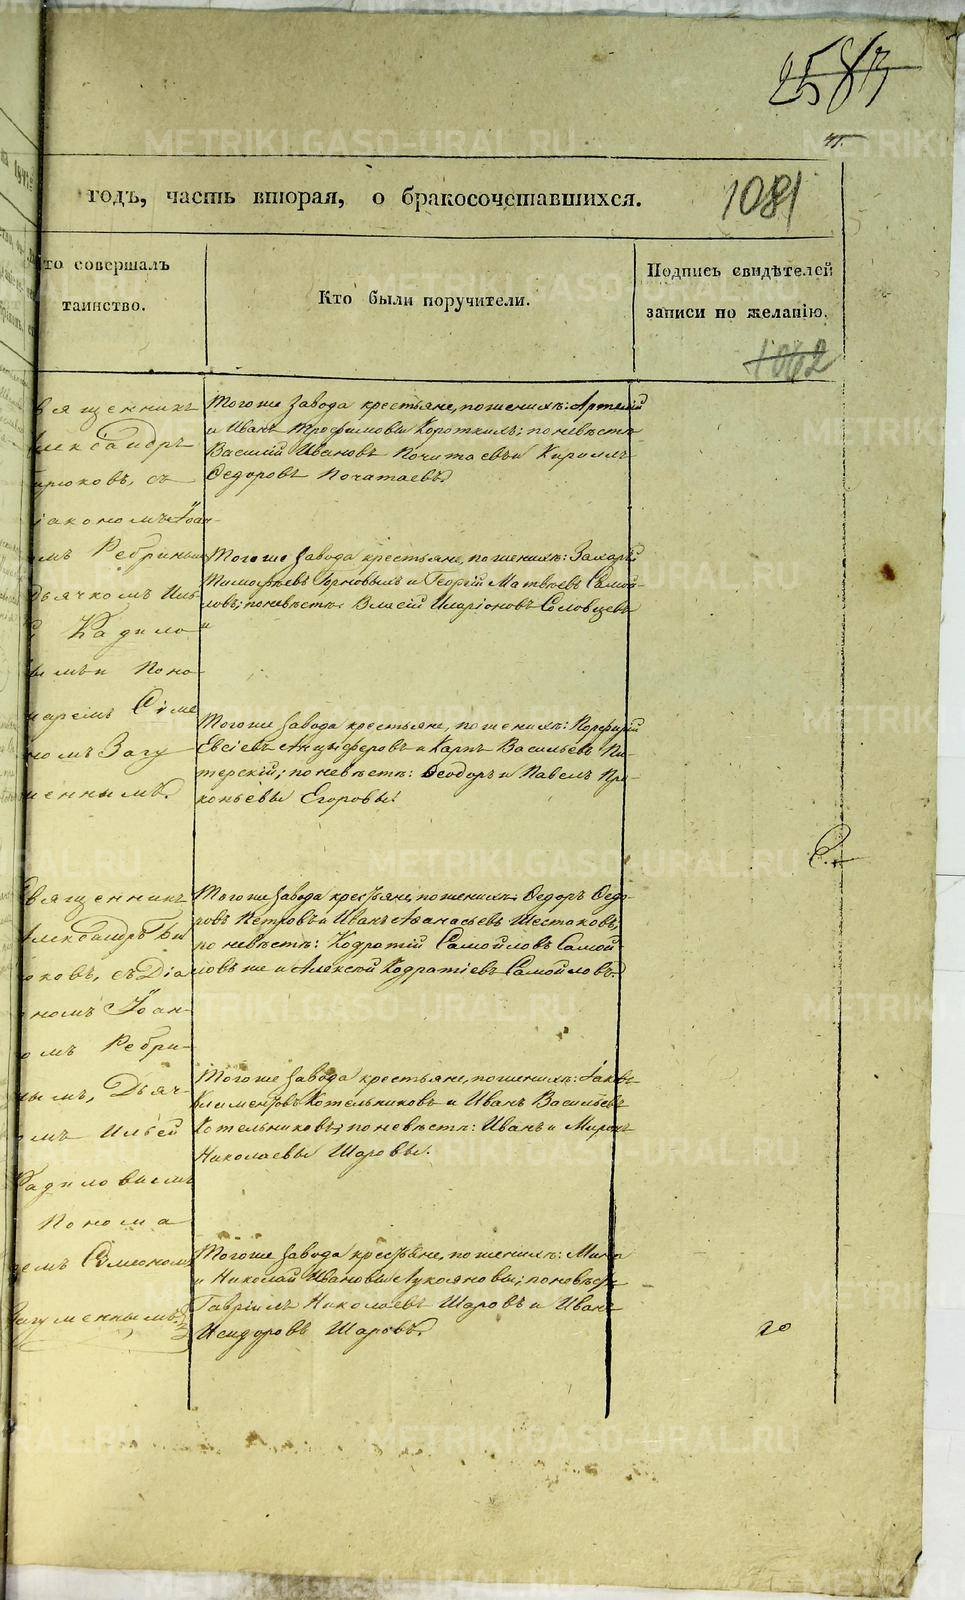 2583
41.
годъ, часть вторая, о бракосочетавшихся.
1081
то совершалъ
таинство.
Кто были поручители.
Подпись свидѣтелей
записи по желанію.
1062
вященникъ
лександръ
ирюковъ, съ
іакономъ Іоан-
омъ Ребриным
Дьячкомъ Иль
Кадило
ымъ и Поно-
маремъ Симе
ономъ Загу
менным.
Тогоже Завода крестьяне, пожених: Артемій
и Иванъ Трофимовы Коротких; поневѣстѣ
Василій Ивановъ Початаевъ и Кириллъ
Федоровъ Початаевъ.
Тогоже Завода крестьяне, пожених: Захаръ
Тимофѣевъ и Георгій Матвѣевъ Самой-
ловъ; поневѣстѣ: Власій Иларіоновъ Соловцевъ
и
Тогоже Завода крестьяне, пожених: Порфирій
Евсіевъ Анциферовъ и Карпъ Васильевъ Пи-
терскій; поневѣстѣ: Феодоръ и Павелъ Про-
копьевы Егоровы.
Священникъ
лександръ Би
юковъ, съ Діа
ономъ Іоан-
омъ Ребри-
нымъ, Дьяч
омъ Ильей
Кадиловымъ
Понома
ремъ Симеоном
Загуменнымъ.
Тогоже Завода крестьяне, пожених: Федоръ Федо-
ровъ Петровъ и Иванъ Афанасьевъ Шестаковъ,
по невѣстѣ: Кодратій Самойловъ Самой-
ловъ же и Алексѣй Кодратіевъ Самойловъ.
Тогоже Завода крестьяне, пожених: Іаковъ
Климентовъ Котельниковъ и Иванъ Васильевъ
Котельниковъ; поневѣстѣ: Иванъ и Миронъ
Николаевы Шаровы.
Тогоже Завода крестьяне, пожених: Миха
и Николай Ивановы Лукояновы; поневѣстѣ
Гавріилъ Николаевъ Шаровъ и Иванъ
Исидоровъ Шаровъ.
20
METRIKI.GASO-URAL.RU